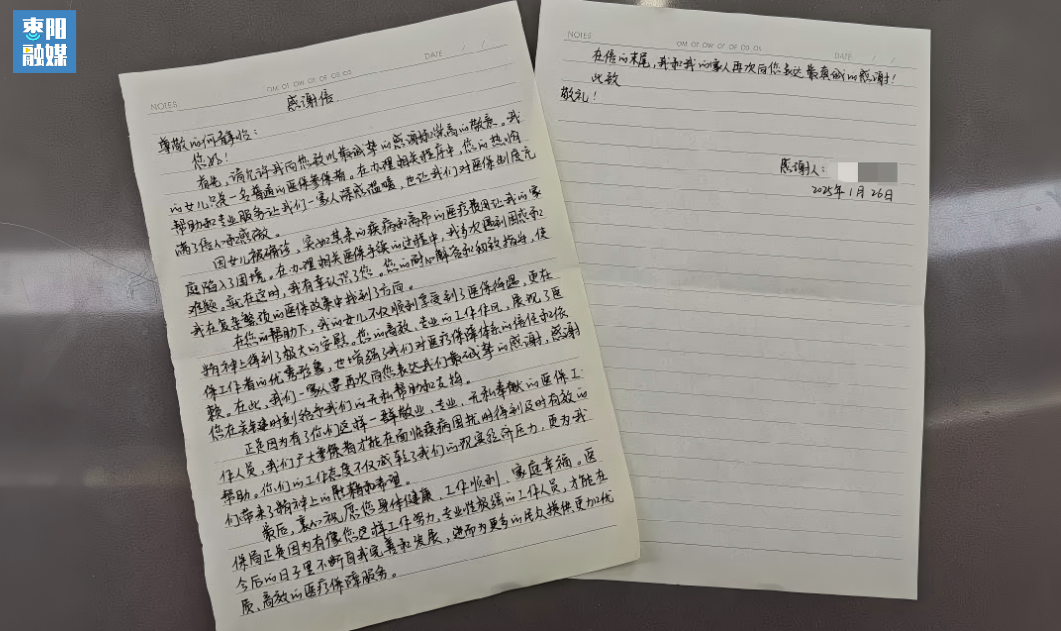 枣阳
融媒
NOTES
OM OT OW OT OF OS OS
DATE / /
感谢信
尊敬的何解怡：
您好！
首先，请允许我向您致以最诚挚的感谢和崇高的敬意。我
的女儿只是一名普通的医保参保者。在办理相关程序中，您的热情
帮助和专业服务让我们一家人深感温暖，也让我们对医保制度充
满了信心和感激。
因女儿被确诊，突如其来的疾病和高昂的医疗费用让我的家
庭陷入了困境。在办理相关医保手续的过程中，我多次遇到困惑和
难题。就在这时，我有幸认识了您。您的耐心解答和细致指导，使
我在复杂繁琐的医保政策中找到了方向。
在您的帮助下，我的女儿不仅顺利享受到了医保待遇，更在
精神上得到了极大的安慰。您的高效、专业的工作作风，展现了医
保工作者的优秀形象，也增强了我们对医疗保障体系的信任和依
赖。在此，我们一家人要再次向您表达我们最诚挚的感谢，感谢
您在关键时刻给予我们的无私帮助和支持。
正是因为有了你们这样一群敬业、专业、无私奉献的医保工
作人员，我们广大参保者才能在面临疾病困扰时得到及时有效的
帮助。你们的工作态度不仅减轻了我们的现实经济压力，更为我
们带来了精神上的慰藉和希望。
最后，衷心祝愿您身体健康、工作顺利、家庭幸福。医
保局正是因为有像您这样工作努力，专业性极强的工作人员，才能在
今后的日子里不断自我完善和发展，进而为更多的民众提供更加优
质、高效的医疗保障服务。
NOTES
OM OT OW OT OF OS OS
DATE / /
在信的末尾，我和我的家人再次向您表达最真诚的感谢！
此致
敬礼！
感谢人：
2025年1月26日